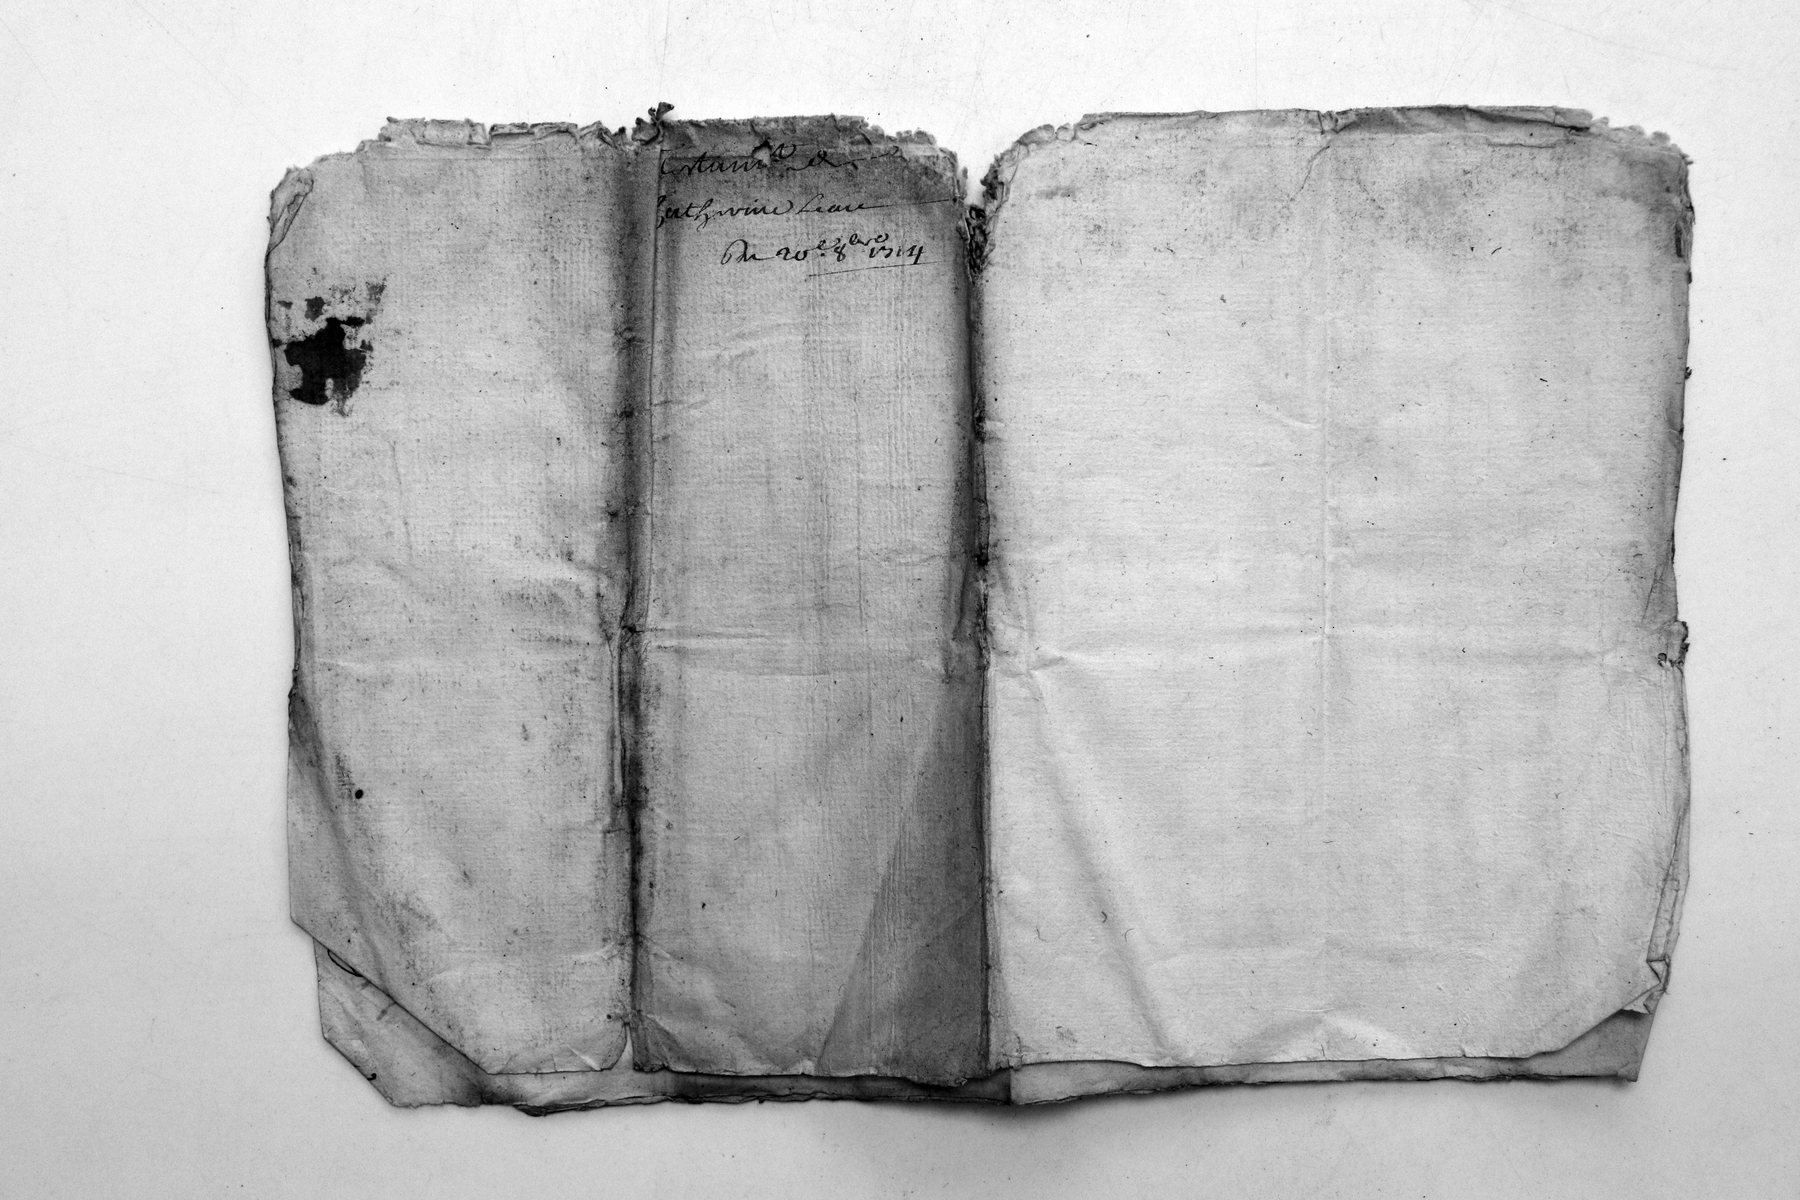 Testam.t de
Catherine Leare
Du 20.e 8bre 1714